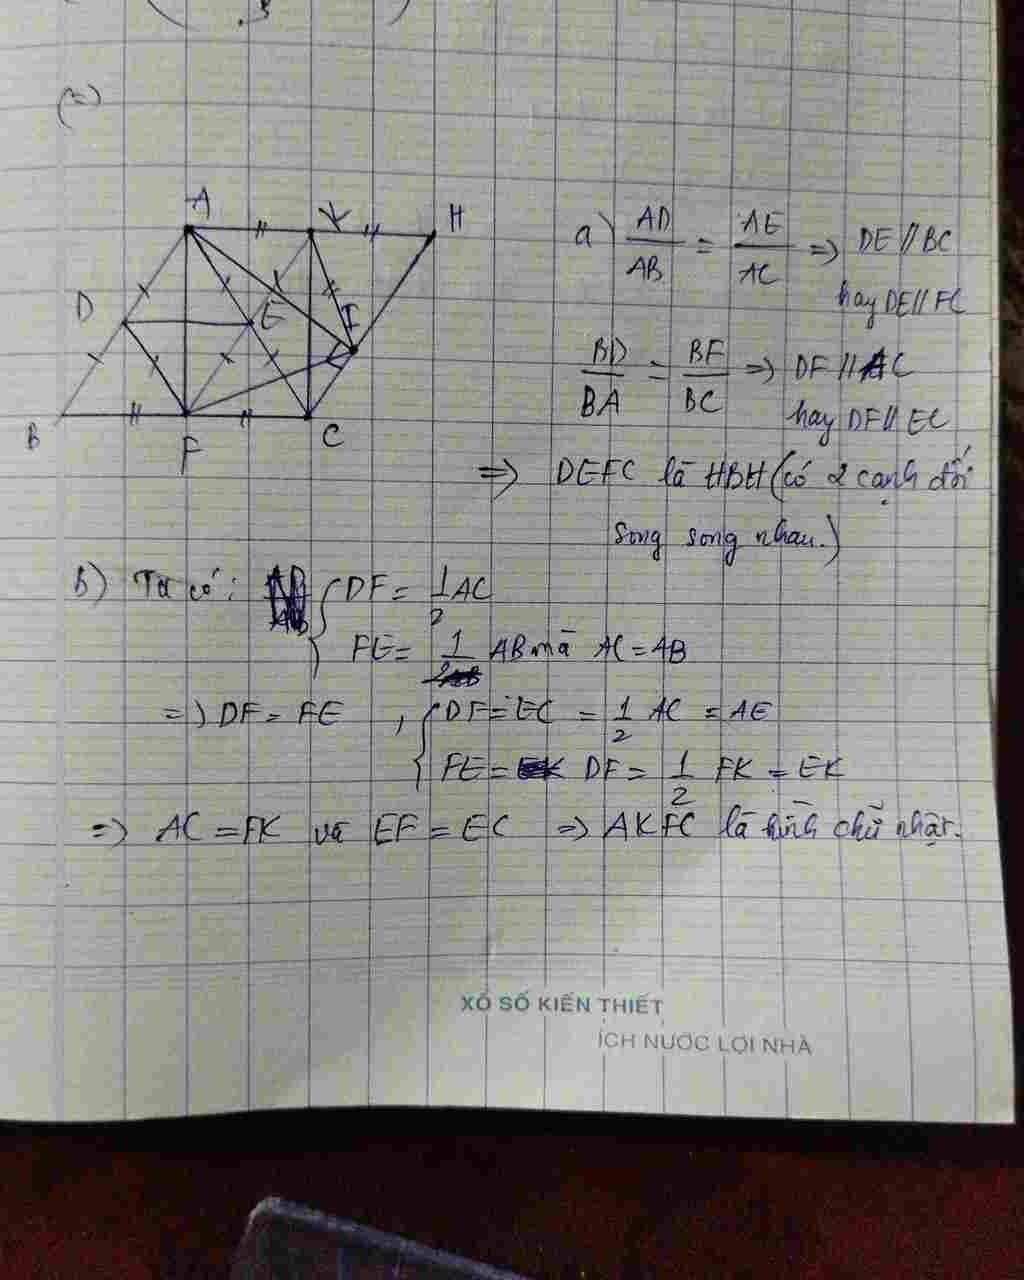 (=)
A K H
D E I
B F C
a) AD/AB = AE/AC => DE // BC
hay DE // FC
BD/BA = BF/BC => DF // AC
hay DF // EC
=> DEFC là HBH (có 2 cạnh đối
song song nhau.)
b) Ta có: { DF = 1/2 AC
FE = 1/2 AB mà AC = AB
=> DF = FE , { DF = EC = 1/2 AC = AE
FE = DF = 1/2 FK = EK
=> AC = FK và EF = EC => AKFC là hình chữ nhật.
XỔ SỐ KIẾN THIẾT
ÍCH NƯỚC LỢI NHÀ